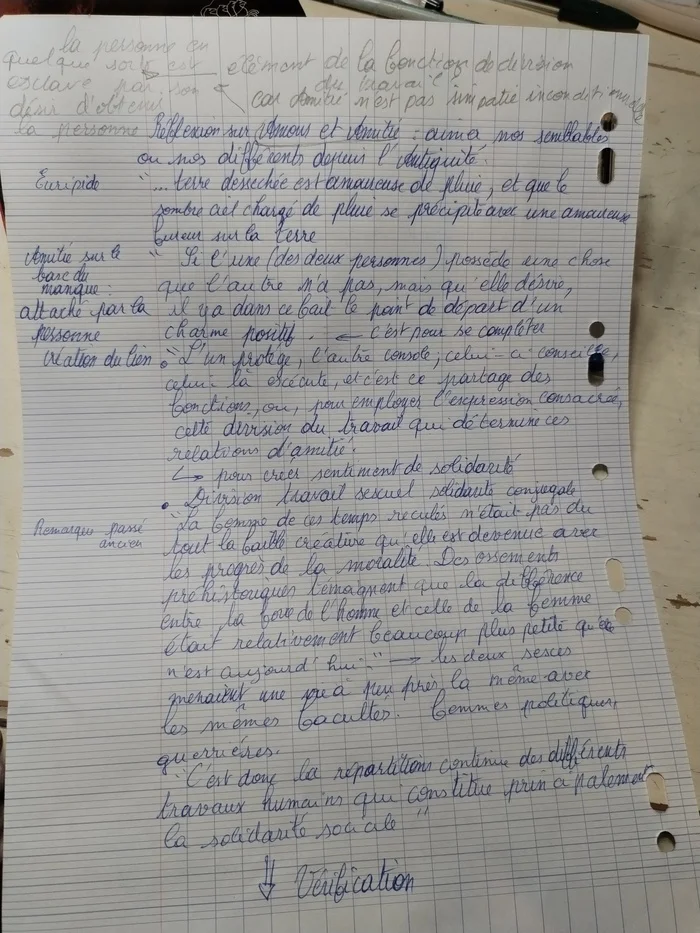 la personne en
quelque sorte est élément de la fonction de division
esclave par son du travail
désir d'obtenir car Amitié n'est pas simpatie inconditionnelle
la personne
Réflexion sur Amour et Amitié : aimer nos semblables
ou nos différents depuis l'Antiquité.
Euripide "... terre dessechée est amoureuse de pluie, et que le
sombre ciel chargé de pluie se précipite avec une amoureuse
fureur sur la terre
Amitié sur le " Si l'une (des deux personnes) possède une chose
basc du
manque : que l'autre n'a pas, mais qu'elle désire,
attaché par la il y a dans ce fait le point de départ d'un
personne charme positif. ← c'est pour se compléter
création du lien • "L'un protège, l'autre console ; celui-ci conseille,
celui-là exécute, et c'est ce partage des
fonctions, ou, pour employer l'expression consacrée,
cette division du travail qui détermine ces
relations d'amitié.
↳ pour créer sentiment de solidarité
• Division travail sexuel solidarité conjugale
Remarque passé "La femme de ces temps reculés n'était pas du
ancien tout la faible créature qu'elle est devenue avec
les progrès de la moralité. Des ossements
préhistoriques témoignent que la différence
entre la force de l'homme et celle de la femme
était relativement beaucoup plus petite qu'elle
n'est aujourd'hui." → les deux sexes
menaient une vie à peu près la même avec
les mêmes facultés. femmes politiques,
guerrières.
"C'est donc la répartitions continue des différents
travaux humains qui constitue principalement
la solidarité sociale"
⇓ Vérification